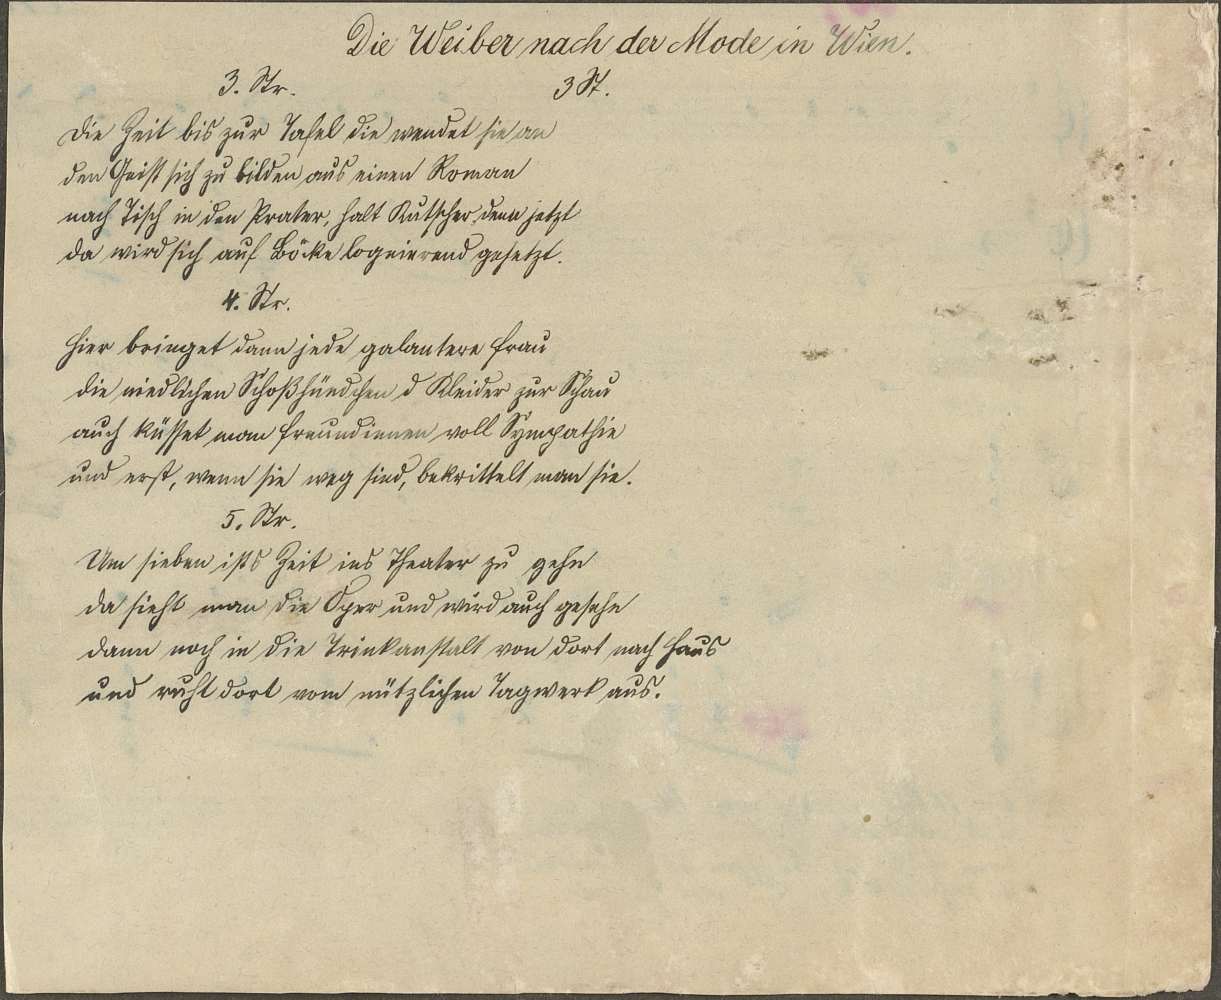 Die Weiber nach der Mode in Wien.
3. Str. 3 St.
Die Zeit bis zur Tafel die wendet sie an
den Geist sich zu bilden aus einen Roman
nach Tisch in den Prater, halt Kutscher denn jetzt
da wird sich auf Böcke lognierend gesetzt.
4. Str.
Hier bringet dann jede galantere Frau
die niedlichen Schoßhündchen d Kleider zur Schau
auch küsset man Freundinnen voll Sympathie
und erst, wenn sie weg sind, bekrittelt man sie.
5. Str.
Um sieben ists Zeit ins Theater zu gehn
da sieht man die Oper und wird auch gesehn
dann noch in die Trinkanstalt von dort nach Haus
und ruht dort vom nützlichen Tagwerk aus.